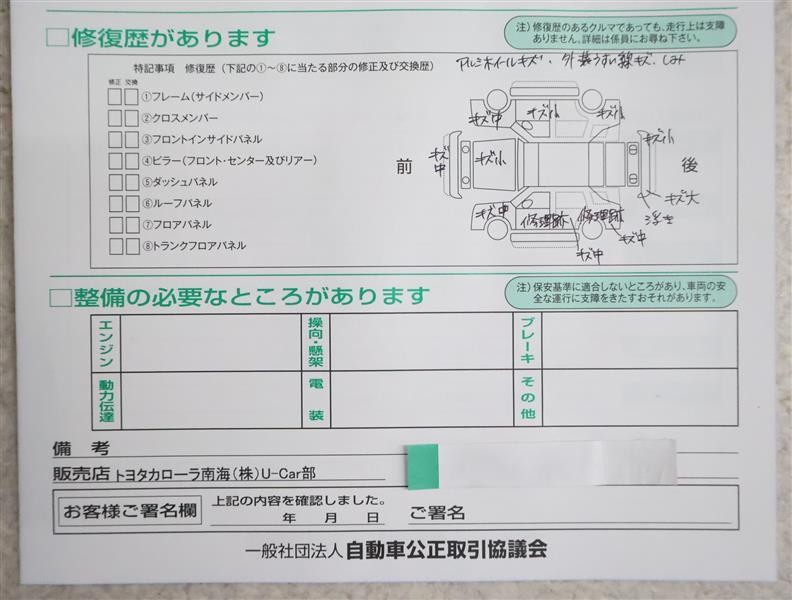 □修復歴があります
注）修復歴のあるクルマであっても、走行上は支障
ありません。詳細は係員にお尋ね下さい。
特記事項 修復歴（下記の①～⑧に当たる部分の修正及び交換歴）
アルミホイールキズ・外装うすい線キズ．しみ
修正 交換
①フレーム（サイドメンバー）
②クロスメンバー
③フロントインサイドパネル
④ピラー（フロント・センター及びリアー）
⑤ダッシュパネル
⑥ルーフパネル
⑦フロアパネル
⑧トランクフロアパネル
キズ中
キズ小
キズ小
前
キズ中
キズ小
キズ小
後
キズ大
浮き
キズ中
修理跡
修理跡
キズ中
キズ中
□整備の必要なところがあります
注）保安基準に適合しないところがあり、車両の安
全な運行に支障をきたすおそれがあります。
エンジン
操向・懸架
ブレーキ
動力伝達
電装
その他
備考
販売店 トヨタカローラ南海（株）U-Car部
お客様ご署名欄
上記の内容を確認しました。
年 月 日
ご署名
一般社団法人 自動車公正取引協議会